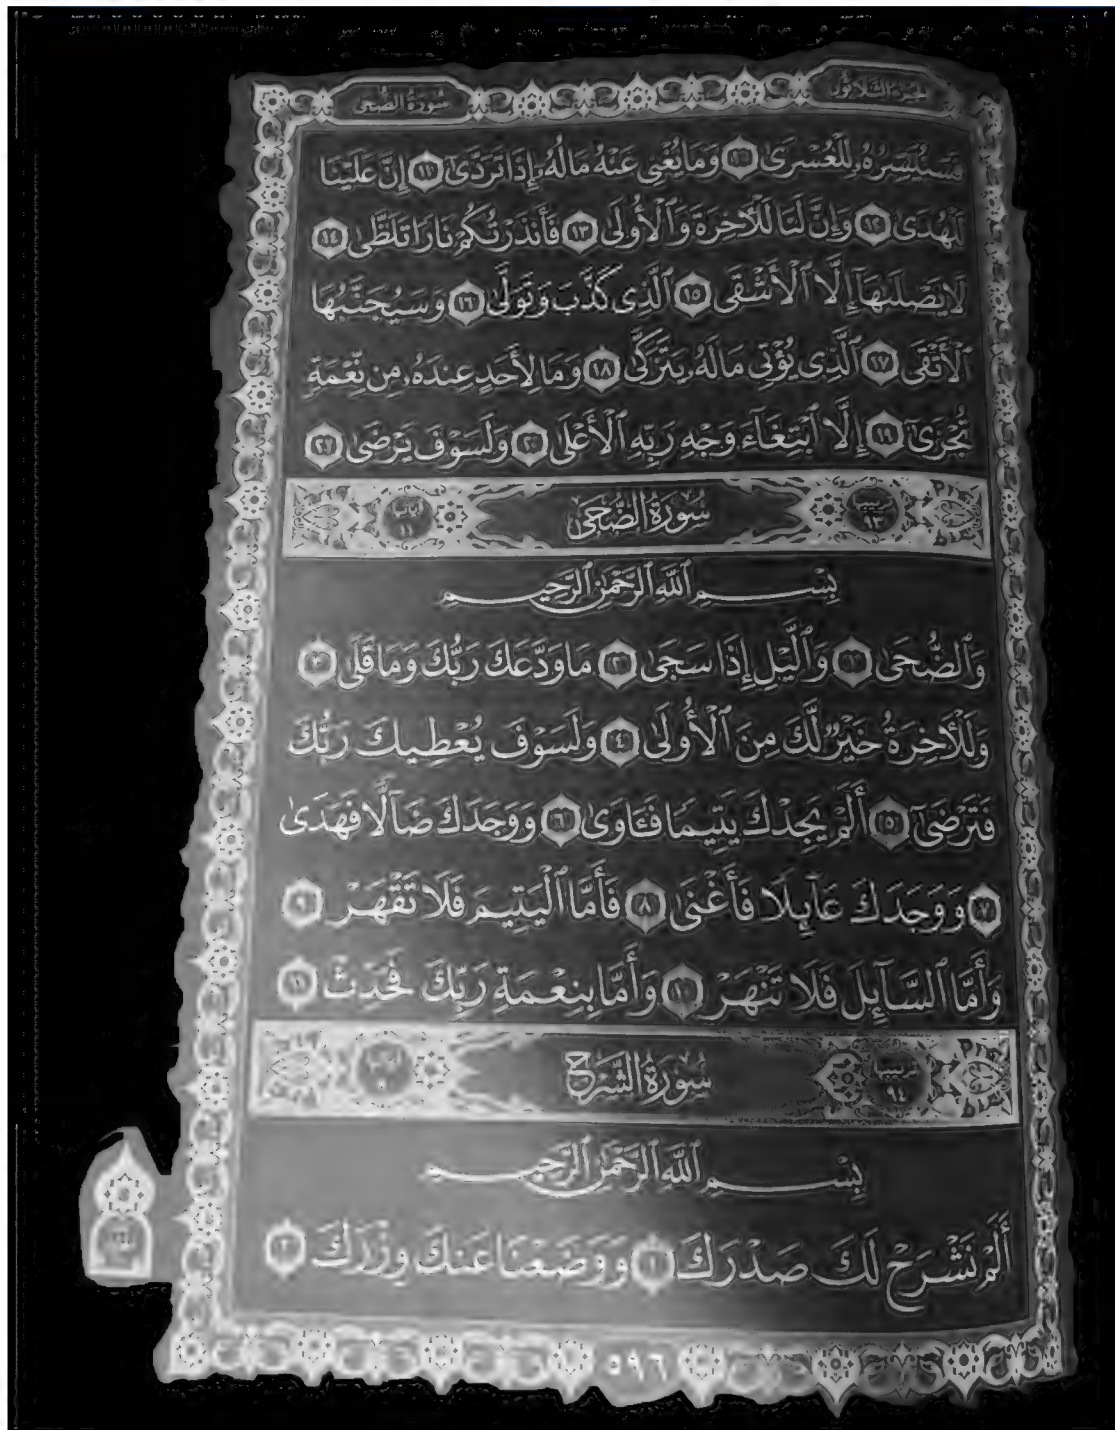 سُورَةُ الضُّحَى الجزء الثلاثون
فَسَنُيَسِّرُهُۥ لِلْعُسْرَىٰ ١٠ وَمَا يُغْنِى عَنْهُ مَالُهُۥٓ إِذَا تَرَدَّىٰٓ ١١ إِنَّ عَلَيْنَا
لَلْهُدَىٰ ١٢ وَإِنَّ لَنَا لَلْـَٔاخِرَةَ وَٱلْأُولَىٰ ١٣ فَأَنذَرْتُكُمْ نَارًا تَلَظَّىٰ ١٤
لَا يَصْلَىٰهَآ إِلَّا ٱلْأَشْقَى ١٥ ٱلَّذِى كَذَّبَ وَتَوَلَّىٰ ١٦ وَسَيُجَنَّبُهَا
ٱلْأَتْقَى ١٧ ٱلَّذِى يُؤْتِى مَالَهُۥ يَتَزَكَّىٰ ١٨ وَمَا لِأَحَدٍ عِندَهُۥ مِن نِّعْمَةٍ
تُجْزَىٰٓ ١٩ إِلَّا ٱبْتِغَآءَ وَجْهِ رَبِّهِ ٱلْأَعْلَىٰ ٢٠ وَلَسَوْفَ يَرْضَىٰ ٢١
ترتيبها ٩٣ سُورَةُ الضُّحَى آياتها ١١
بِسْمِ ٱللَّهِ ٱلرَّحْمَٰنِ ٱلرَّحِيمِ
وَٱلضُّحَىٰ ١ وَٱلَّيْلِ إِذَا سَجَىٰ ٢ مَا وَدَّعَكَ رَبُّكَ وَمَا قَلَىٰ ٣
وَلَلْـَٔاخِرَةُ خَيْرٌ لَّكَ مِنَ ٱلْأُولَىٰ ٤ وَلَسَوْفَ يُعْطِيكَ رَبُّكَ
فَتَرْضَىٰٓ ٥ أَلَمْ يَجِدْكَ يَتِيمًا فَـَٔاوَىٰ ٦ وَوَجَدَكَ ضَآلًّا فَهَدَىٰ
٧ وَوَجَدَكَ عَآئِلًا فَأَغْنَىٰ ٨ فَأَمَّا ٱلْيَتِيمَ فَلَا تَقْهَرْ ٩
وَأَمَّا ٱلسَّآئِلَ فَلَا تَنْهَرْ ١٠ وَأَمَّا بِنِعْمَةِ رَبِّكَ فَحَدِّثْ ١١
ترتيبها ٩٤ سُورَةُ الشَّرْحِ
بِسْمِ ٱللَّهِ ٱلرَّحْمَٰنِ ٱلرَّحِيمِ
أَلَمْ نَشْرَحْ لَكَ صَدْرَكَ ١ وَوَضَعْنَا عَنكَ وِزْرَكَ ٢
٥٩٦